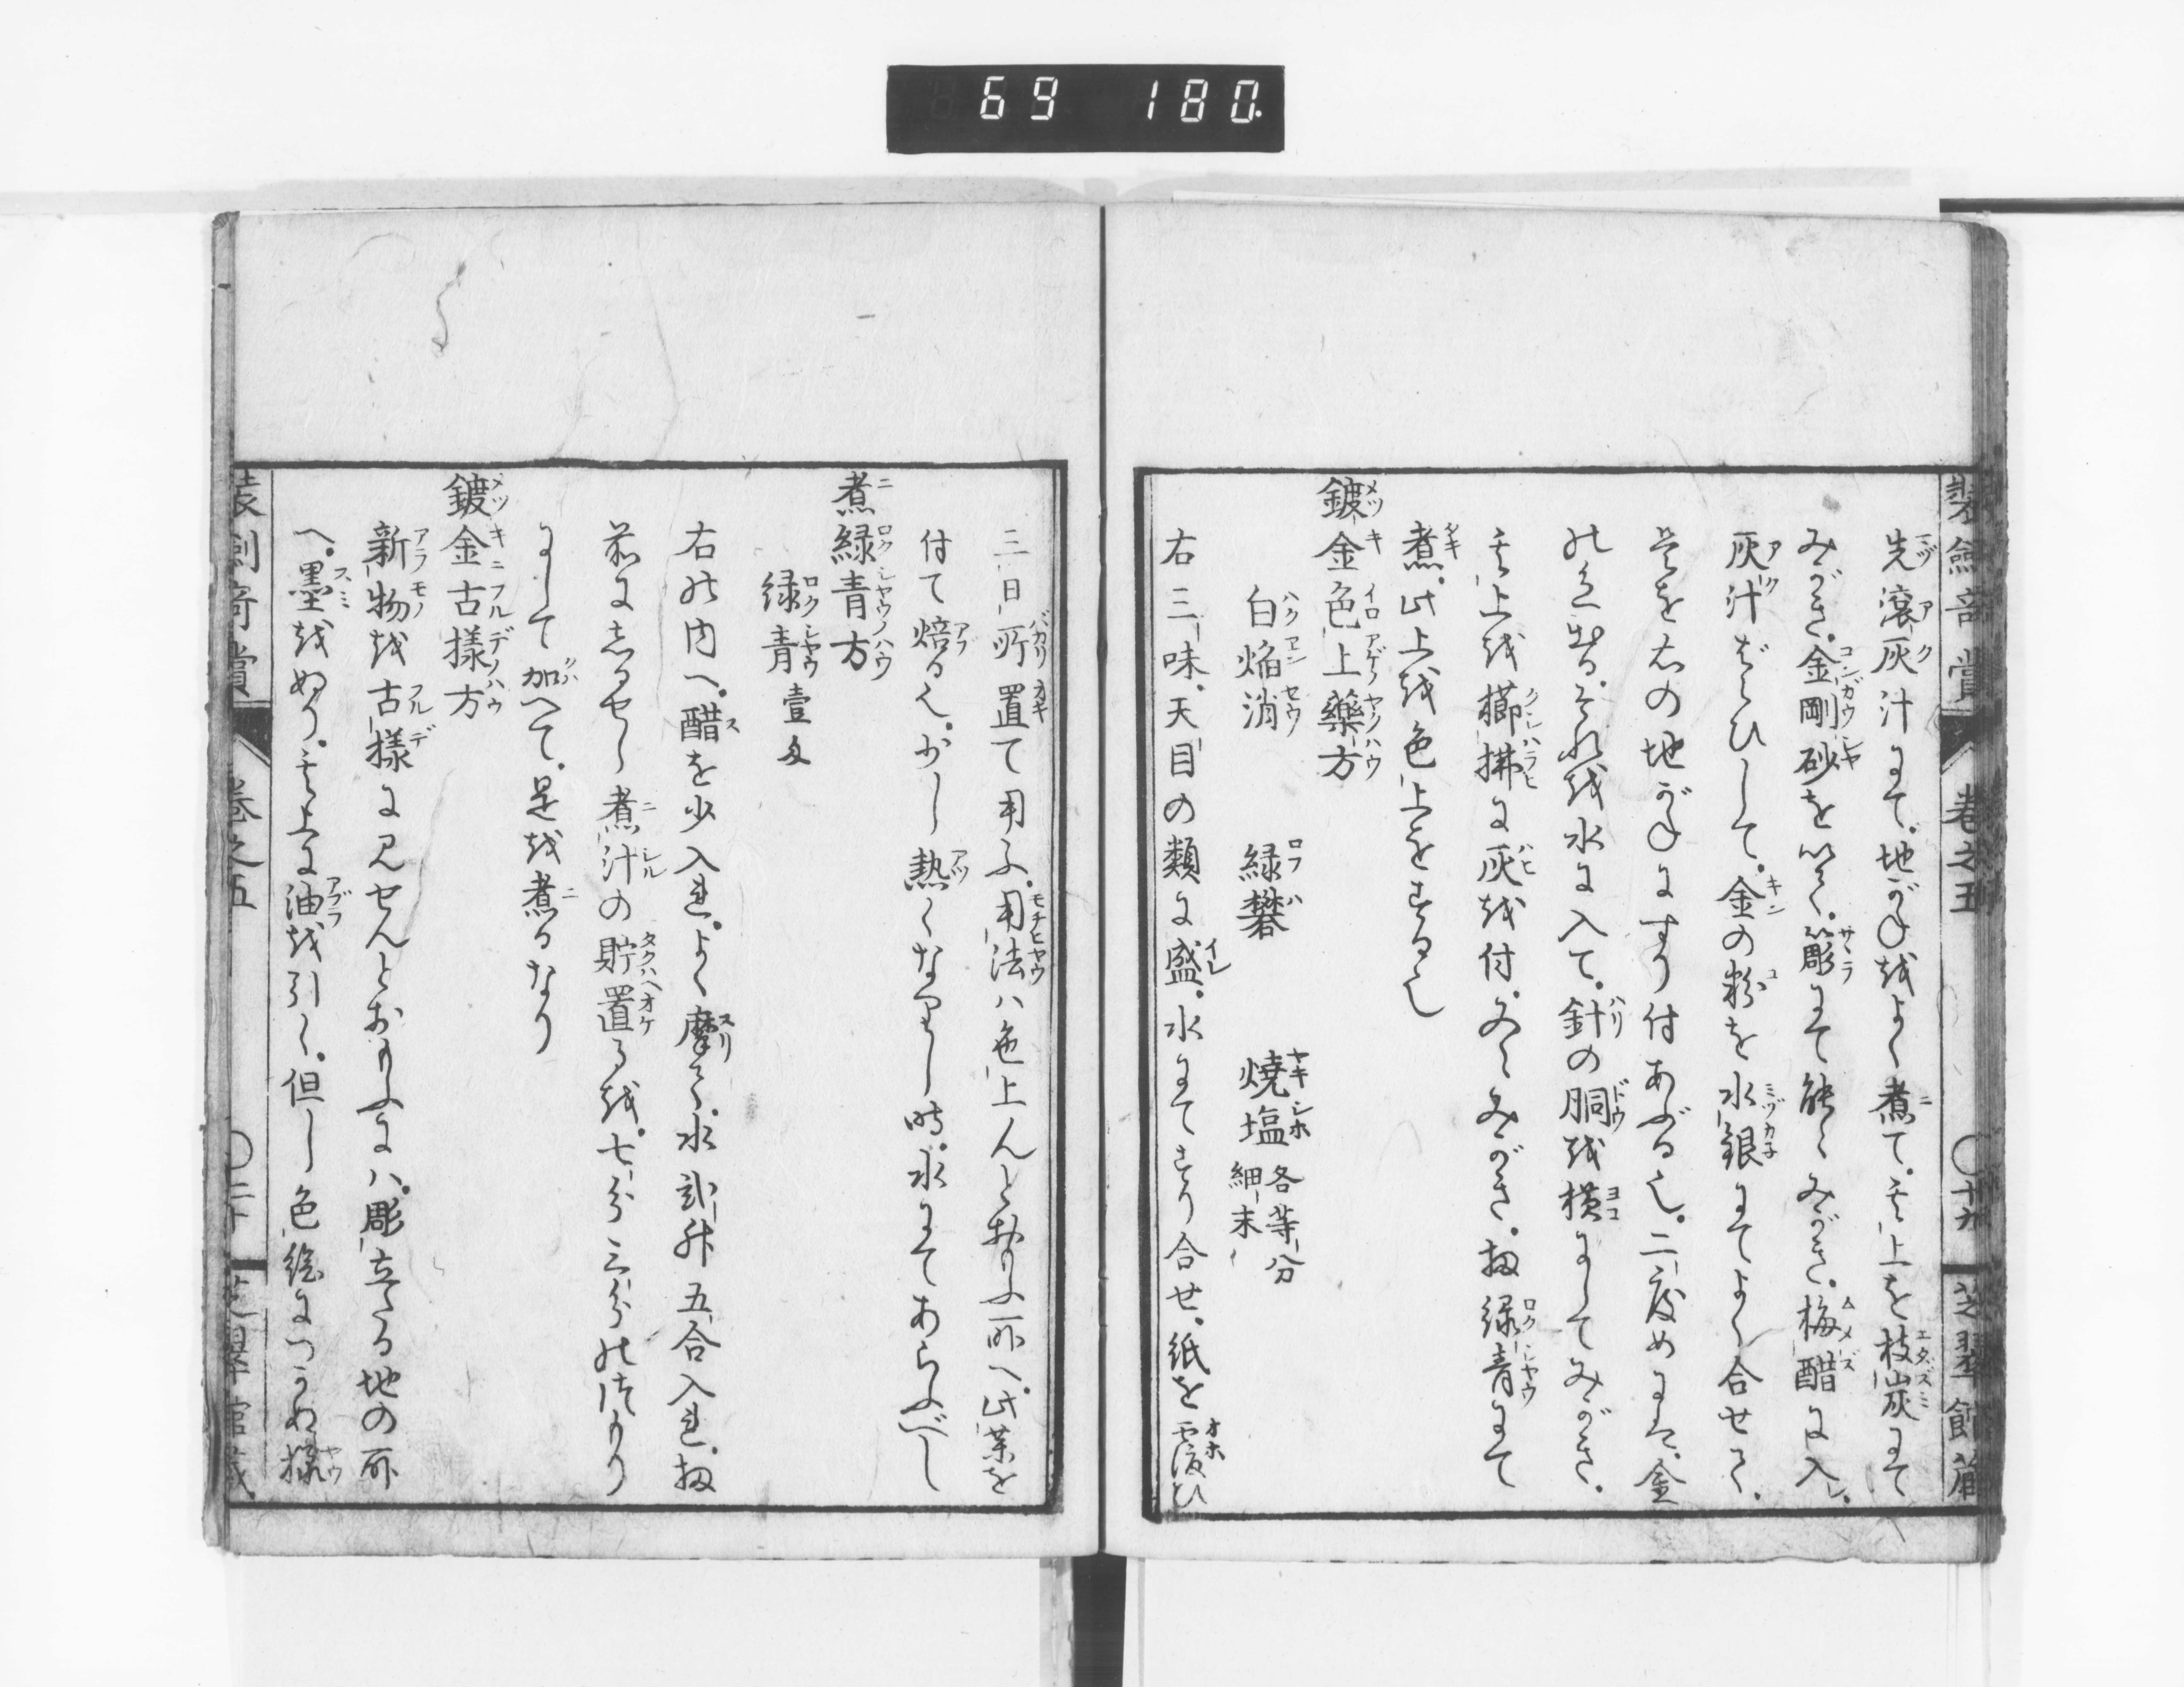 69 180.
装劔奇賞 巻之五 〇十九 芝翠館蔵
先滾灰汁にて。地がねをよく煮て。其上を枝炭にて
みがき。金剛砂を以て。簓にて能くみがき。梅醋に入。
灰汁ざらひして。金の粉を水銀にてよく合せて。
是を右の地がねにすり付あぶる也。二度めには。金
の色出る。それを水に入て。針の胴を横にしてみがき。
其上を櫛拂に灰を付。又みがき。扨緑青にて
煮。此上を色上をする也
鍍金色上藥方
白焔消 緑礬 焼塩 各等分 細末
右三味。天目の類に盛。水にてとり合せ。紙を覆ひ
三日所置て用ふ。用法ハ色上んとおもふ所へ。此薬を
付て焙る也。少し熱くなりし時。水にてあらふべし
煮緑青方
緑青壹匁
右の内へ。醋を少入れ。よく摩て。水弐升五合入れ。扨
前にしるせし煮汁の貯置るを。七分三分のつもり
にして加へて。是を煮るなり
鍍金古樣方
新物を古樣に見せんとおもふにハ。彫立たる地の所
へ。墨をぬり。其上に油を引く。但し色絵につかぬ様
装劔奇賞 巻之五 〇二十 芝翠館蔵